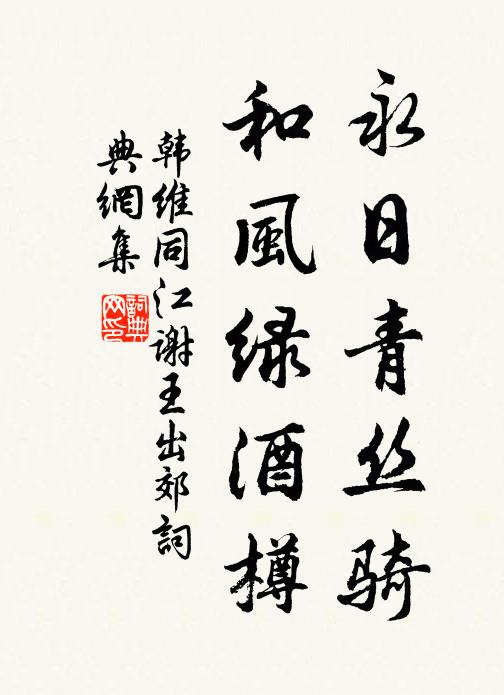 永日青丝骑
和風绿酒樽
韩維同江谢王出郊詞
典網集
詞典
网印